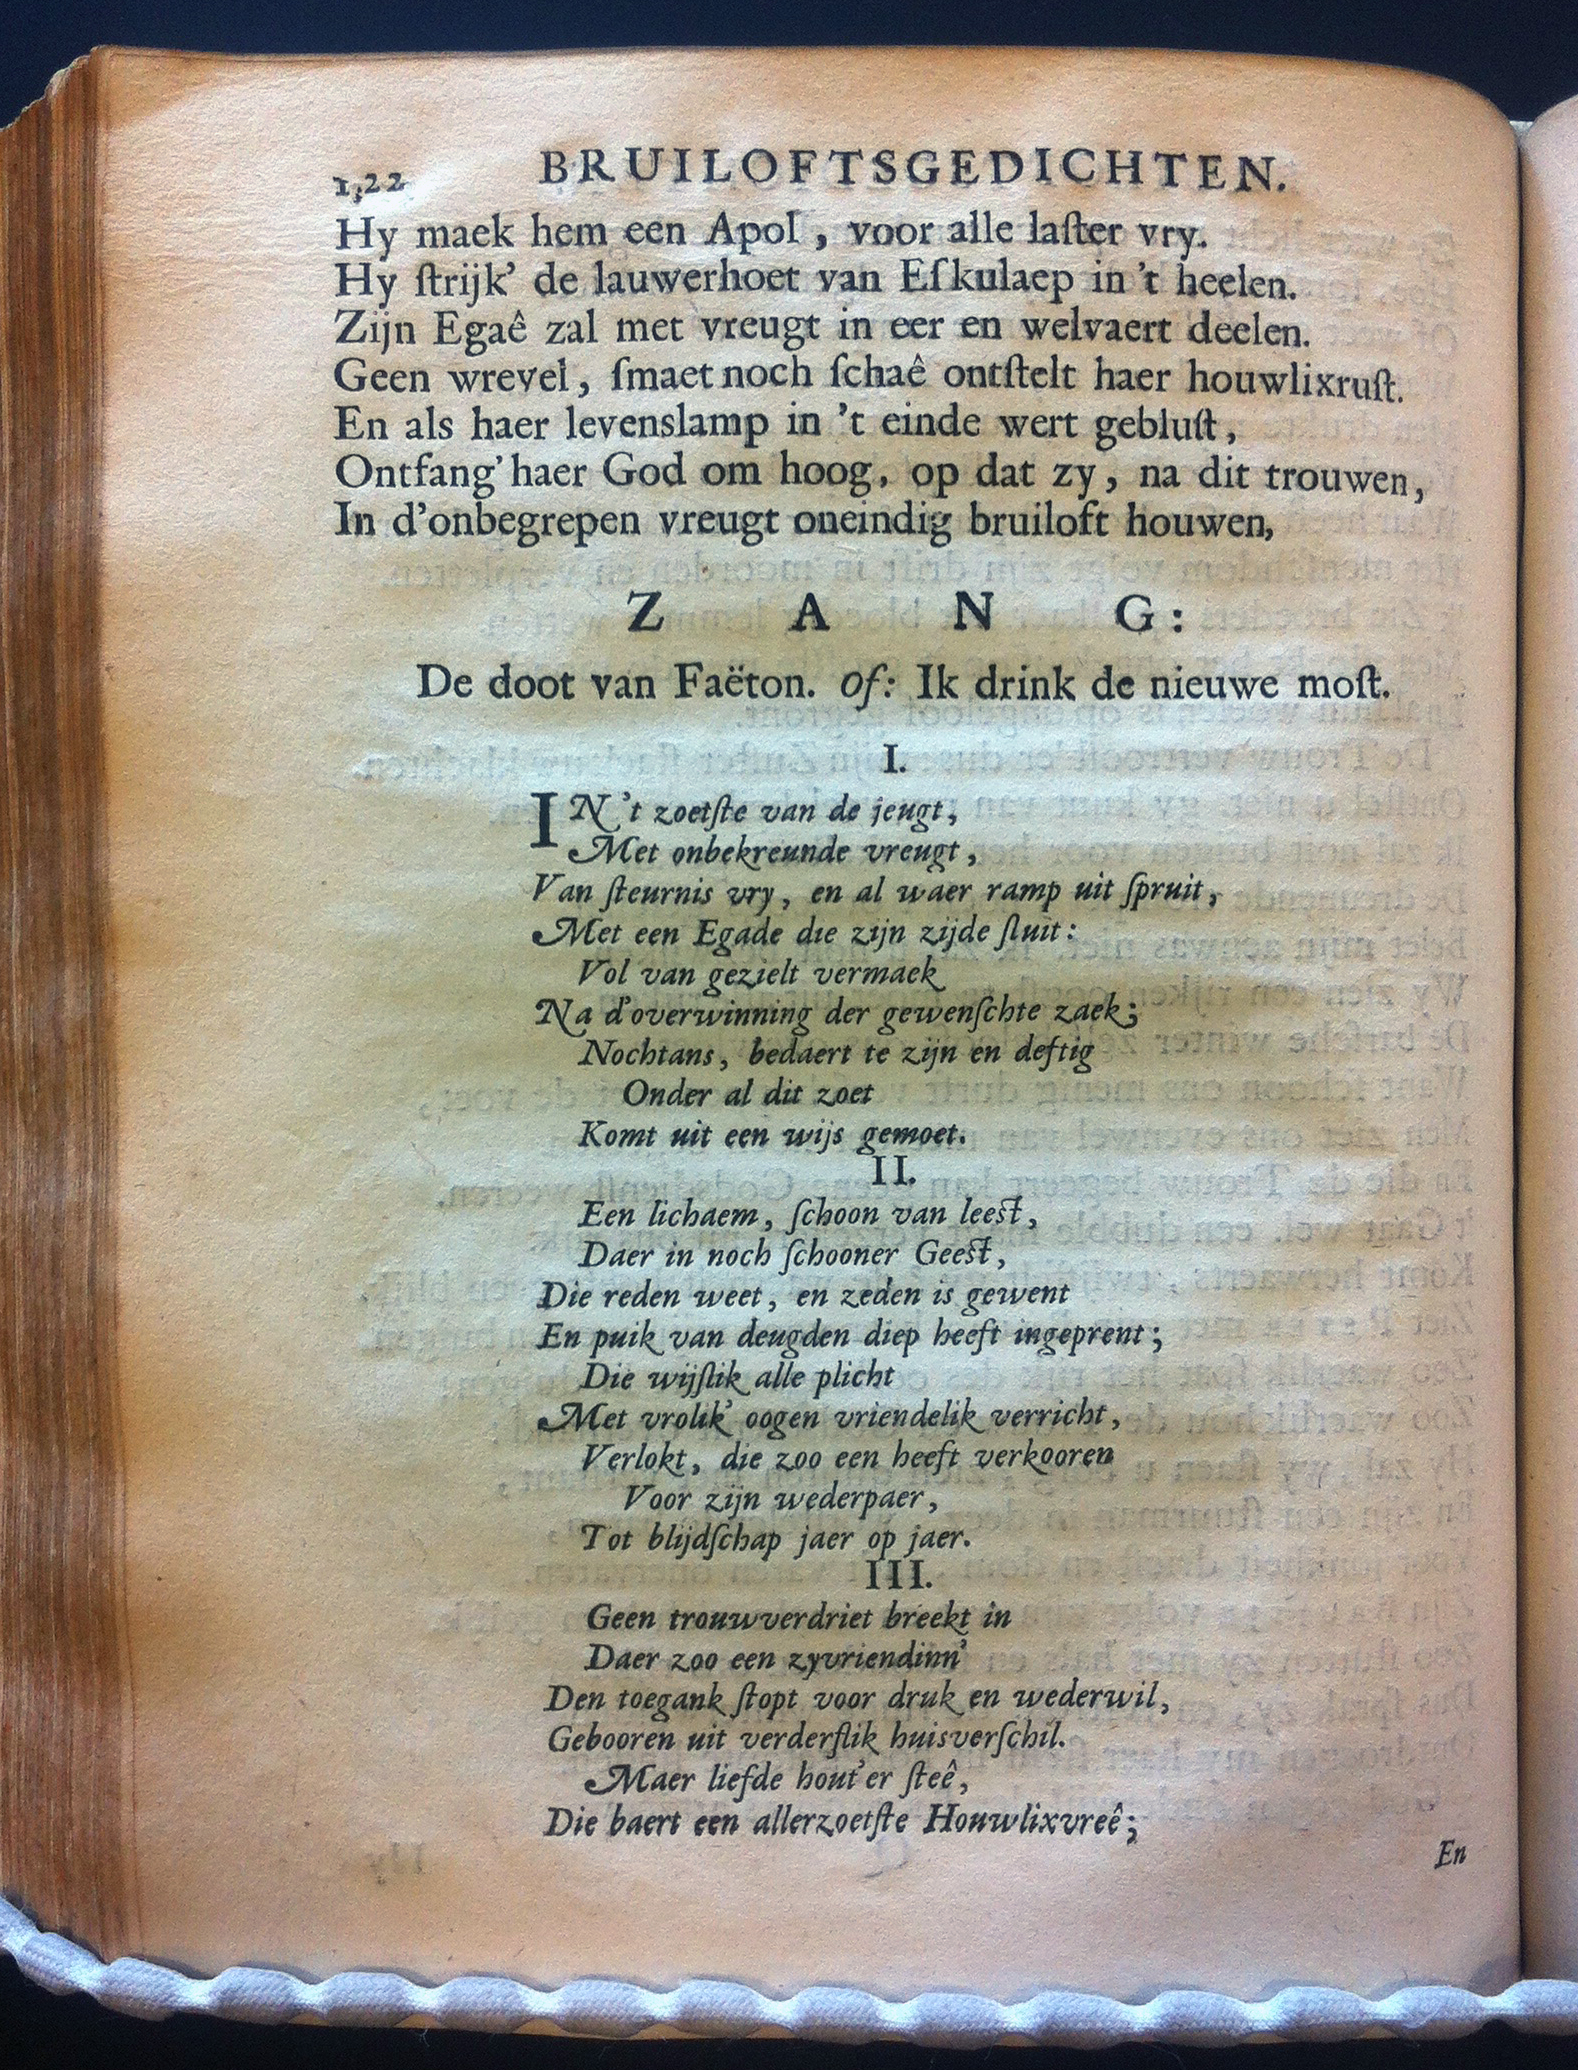 1,22 BRUILOFTSGEDICHTEN.
Hy maek hem een Apol, voor alle laſter vry.
Hy ſtrijk' de lauwerhoet van Eſkulaep in 't heelen.
Zijn Egaê zal met vreugt in eer en welvaert deelen.
Geen wrevel, ſmaet noch ſchaê ontſtelt haer houwlixruſt.
En als haer levenslamp in 't einde wert gebluſt,
Ontfang' haer God om hoog, op dat zy, na dit trouwen,
In d'onbegrepen vreugt oneindig bruiloft houwen,
ZANG:
De doot van Faëton. of: Ik drink de nieuwe moſt.
I.
IN 't zoetſte van de jeugt,
Met onbekreunde vreugt,
Van ſteurnis vry, en al waer ramp uit ſpruit,
Met een Egade die zijn zijde ſluit:
Vol van gezielt vermaek
Na d'overwinning der gewenſchte zaek;
Nochtans, bedaert te zijn en deftig
Onder al dit zoet
Komt uit een wijs gemoet.
II.
Een lichaem, ſchoon van leeſt,
Daer in noch ſchooner Geeſt,
Die reden weet, en zeden is gewent
En puik van deugden diep heeft ingeprent;
Die wijſlik alle plicht
Met vrolik' oogen vriendelik verricht,
Verlokt, die zoo een heeft verkooren
Voor zijn wederpaer,
Tot blijdſchap jaer op jaer.
III.
Geen trouwverdriet breekt in
Daer zoo een zyvriendinn'
Den toegank ſtopt voor druk en wederwil,
Gebooren uit verderflik huisverſchil.
Maer liefde hout'er ſteê,
Die baert een allerzoetſte Houwlixvreê;
En